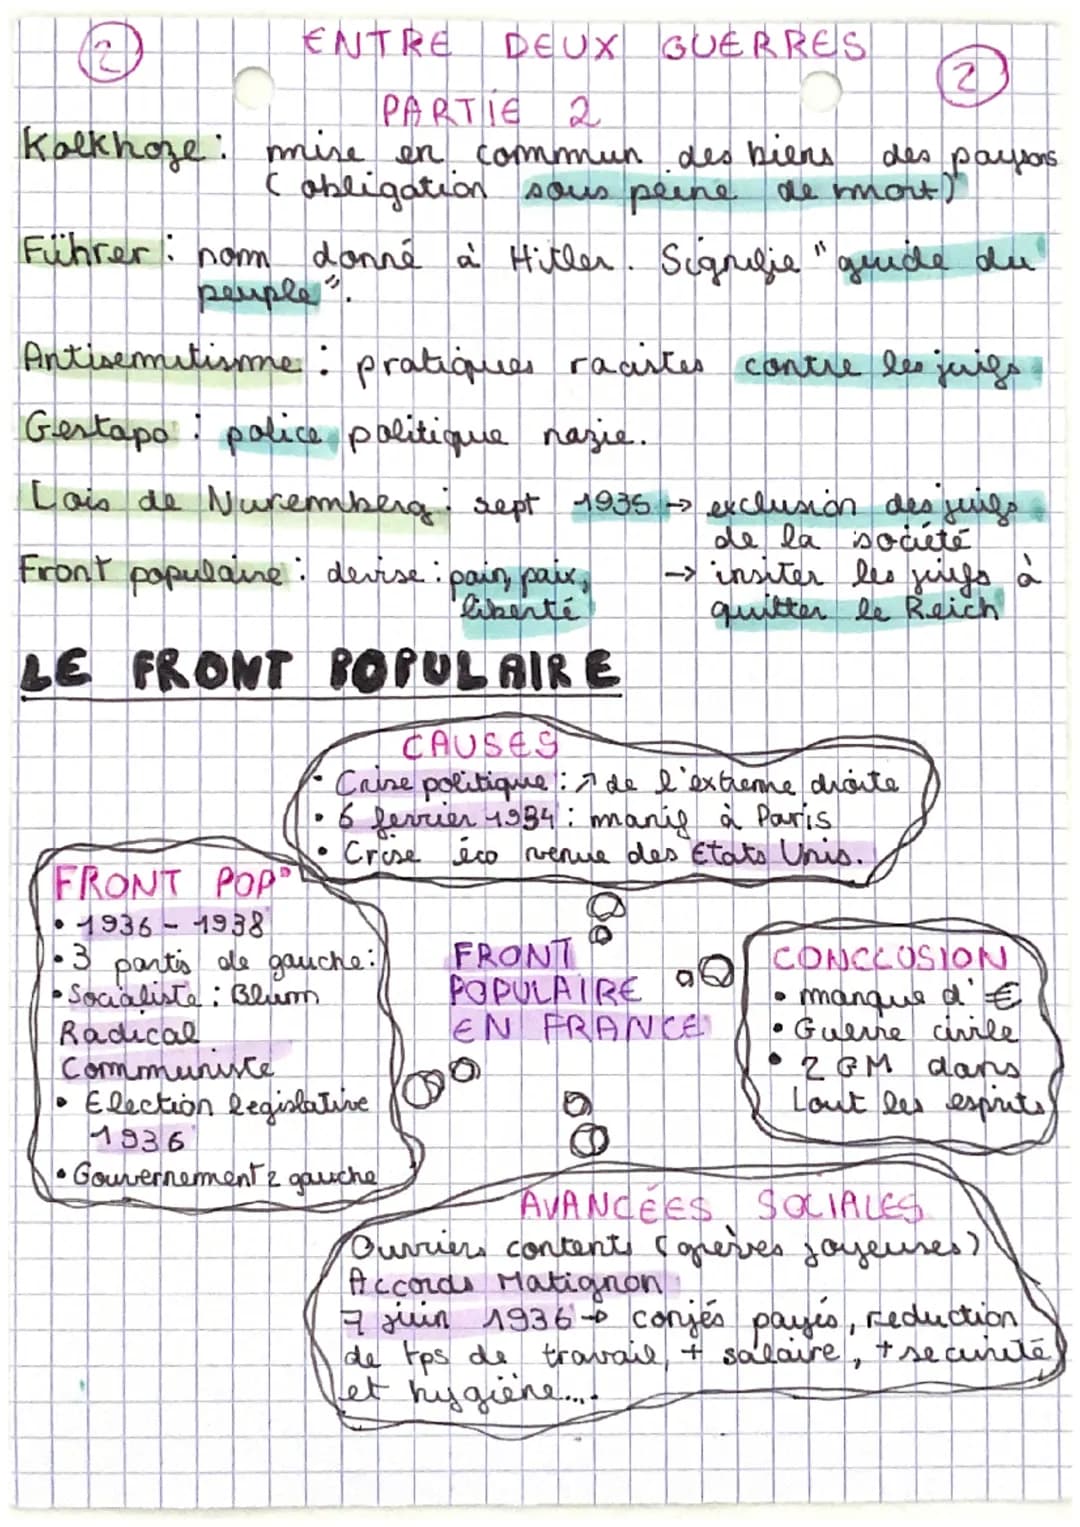 2 ENTRE DEUX GUERRES 2
PARTIE 2
Kolkhoze : mise en commun des biens des paysans
(obligation sous peine de mort)
Führer : nom donné à Hitler. Signifie "guide du
peuple".
Antisemitisme : pratiques racistes contre les juifs
Gestapo : police politique nazie.
Lois de Nuremberg : sept 1935 → exclusion des juifs
de la société
→ insiter les juifs à
quitter le Reich
Front populaire : devise : pain, paix,
liberté
LE FRONT POPULAIRE
CAUSES
• Crise politique : ↗ de l'extreme droite
• 6 fevrier 1934 : manif à Paris
• Crise éco venue des Etats Unis.
FRONT POP°
• 1936 - 1938
• 3 partis de gauche :
• Socialiste : Blum
Radical
Communiste
• Election legislative
1936
• Gouvernement 2 gauche
FRONT
POPULAIRE
EN FRANCE
CONCLUSION
• manque d' €
• Guerre civile
• 2 GM dans
tout les esprits
AVANCÉES SOCIALES
Ouvriers contents (grèves joyeuses)
Accords Matignon
7 juin 1936 → conjés payés, reduction
de tps de travail, + salaire, + securité
et hygiène....